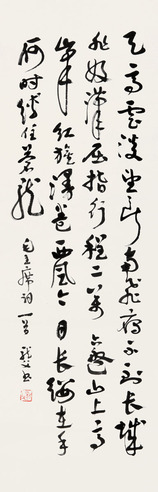 天高雲淡望断南飛雁不到長城
非好漢屈指行程二萬六盤山上高
峯紅旗漫卷西風今日長纓在手
何時縛住蒼龍
毛主席詞一首